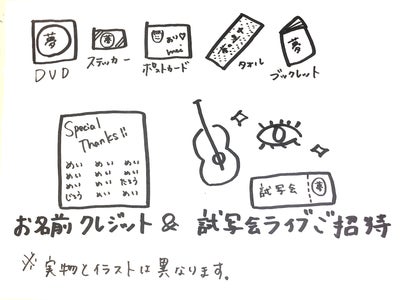 夢 夢 おり♡ mei 夢
DVD ステッカー ポストカード タオル ブックレット
Special
Thanks!!
めい めい めい
めい めい めい
めい めい たろう
じろう めい めい
試写会 夢
お名前クレジット & 試写会ライブご招待
※実物とイラストは異なります。